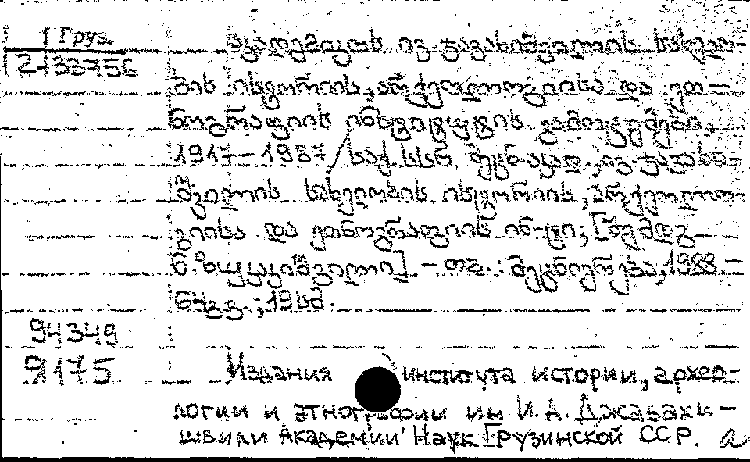 1 Груз.
2-133756
აკადემიკოს ივ. ჯავახიშვილის სახელო-
ბის ისტორიის, არქეოლოგიისა და ეთ-
ნოგრაფიის ინსტიტუტის გამოცემები,
1917-1987 / საქ. სსრ მეცნ. აკად., ივ. ჯავახი-
შვილის სახელობის ისტორიის, არქეოლო-
გიისა და ეთნოგრაფიის ინ-ტი; [შემდგ.
- თბ.: მეცნიერება, 1988. -
94349
9175
Издания института истории, архео-
логии и этнографии им И. А. Джаваки-
швили Академии Наук Грузинской ССР.